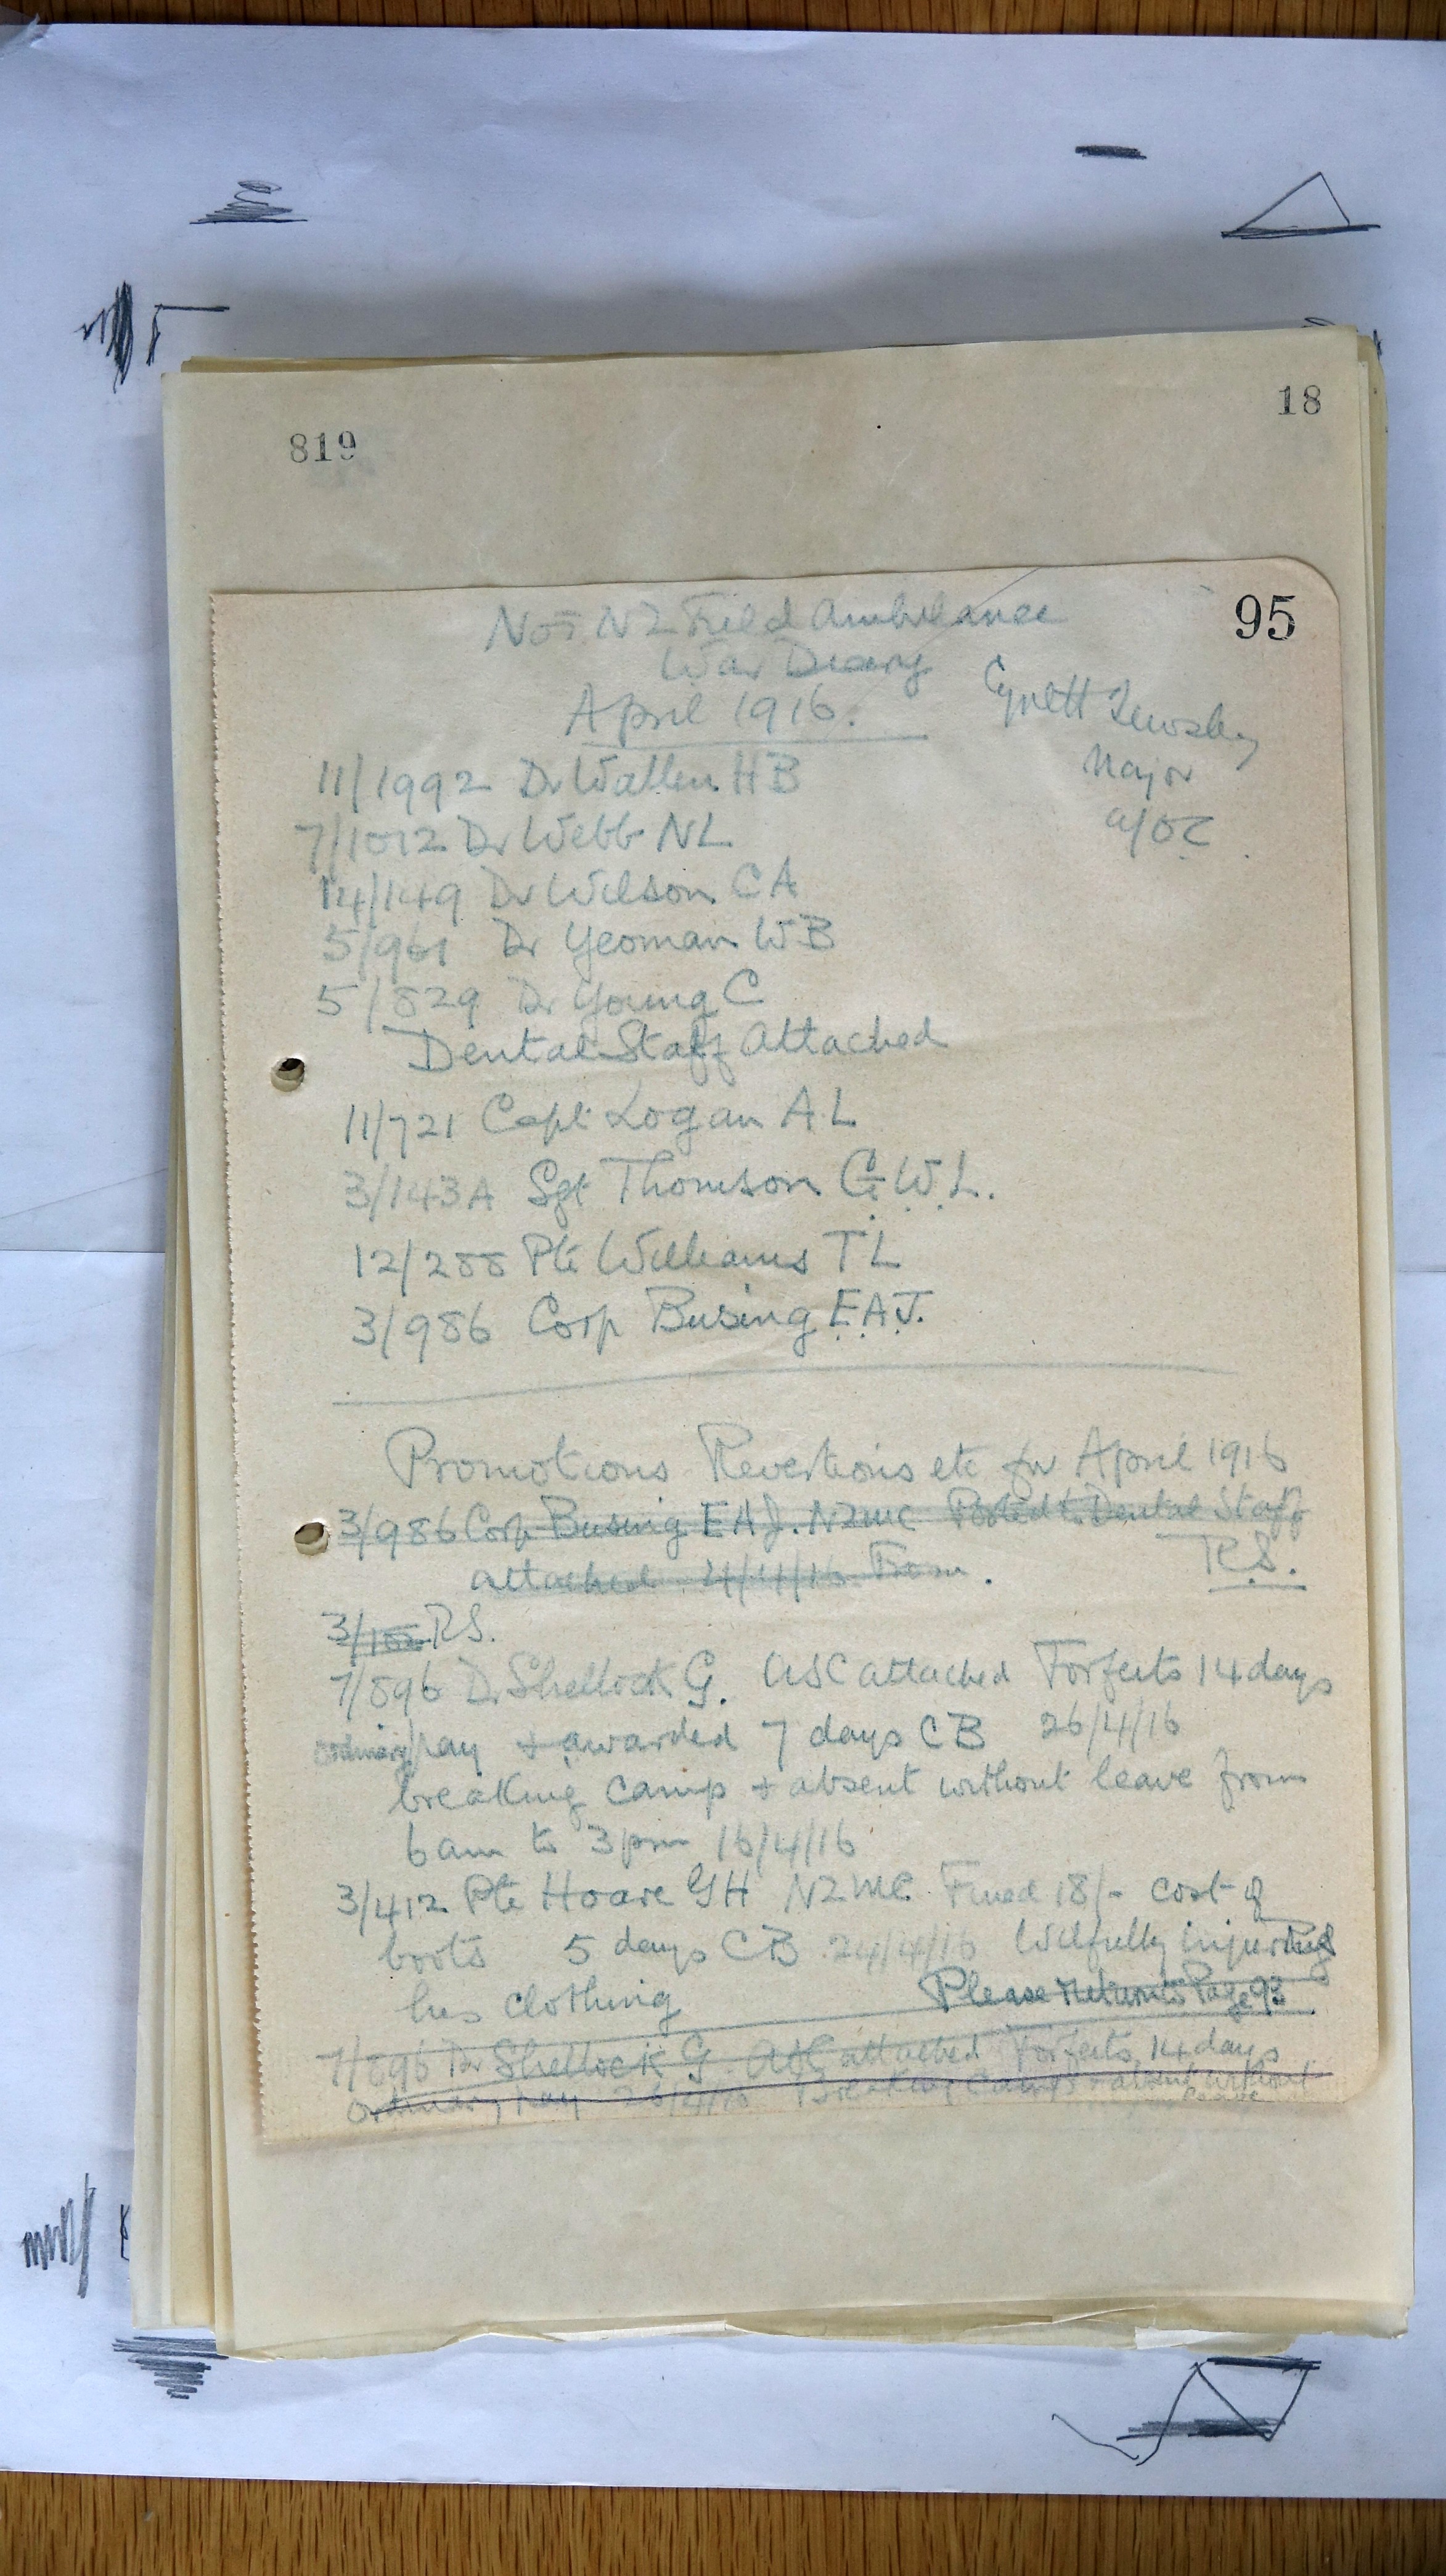 18
819
95
No 1 NZ Field Ambulance
War Diary
April 1916.
Major
a/OC
11/1992 Dr Wallen HB
7/1012 Dr Webb NL
14/149 Dr Wilson CA
5/961 Dr Yeoman WB
5/829 Dr Young C
Dental Staff Attached
11/721 Capt Logan AL
3/143A Sgt Thomson G.W.L.
12/288 Pte Williams TL
3/986 Corp Busing E.A.J.
Promotions Revertions etc for April 1916
3/986 Corp Busing EAJ. NZMC Posted to Dental Staff
attached 4/4/16 From. R.S.
3/ RS.
7/896 Dr Shellock G. ASC attached Forfeits 14 days
ordinary pay + awarded 7 days CB 26/4/16
breaking camp + absent without leave from
6am to 3pm 16/4/16
3/412 Pte Hoare GH NZMC Fined 18/- cost of
boots 5 days CB 24/4/16 Wilfully injuring
his clothing Please Return to Page 93
7/896 Dr Shellock G ASC attached Forfeits 14 days
Ordinary pay 26/4/16 Breaking Camp + absent without
leave